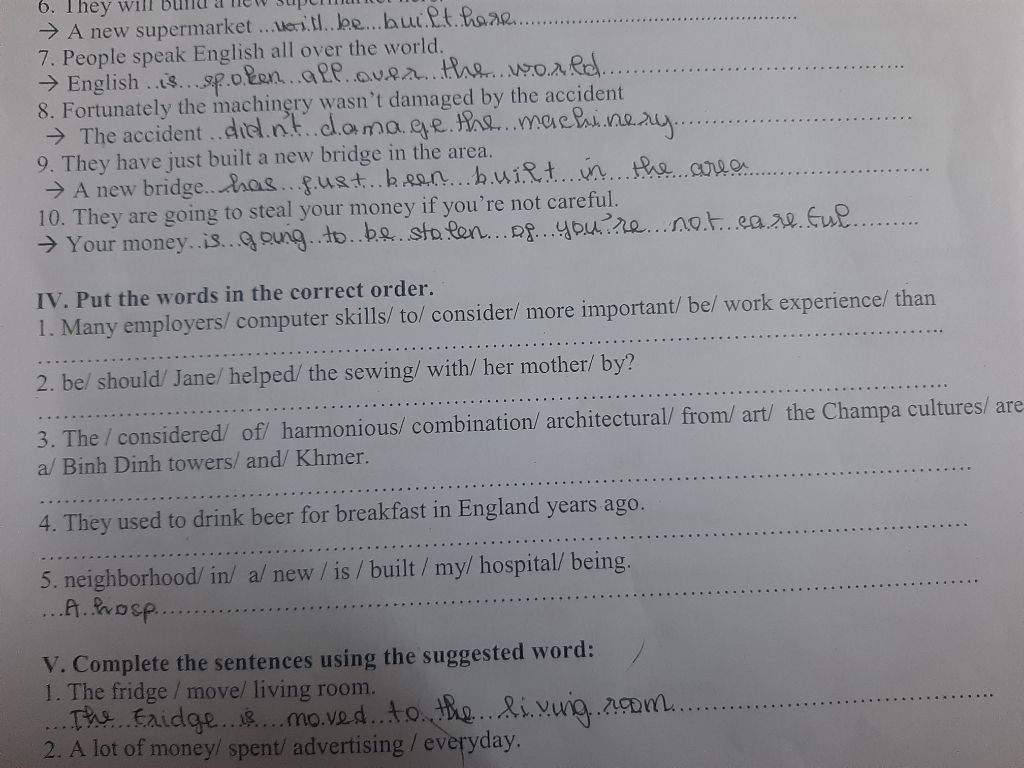 6. They will build a new supermarket here.
→ A new supermarket ...will..be...built.here...
7. People speak English all over the world.
→ English ..is...spoken..all.over..the..world...
8. Fortunately the machinery wasn't damaged by the accident
→ The accident ..didn't..damage.the..machinery...
9. They have just built a new bridge in the area.
→ A new bridge..has...just..been...built...in...the..area...
10. They are going to steal your money if you're not careful.
→ Your money..is..going..to..be..stolen...if...you're...not..careful...
IV. Put the words in the correct order.
1. Many employers/ computer skills/ to/ consider/ more important/ be/ work experience/ than
2. be/ should/ Jane/ helped/ the sewing/ with/ her mother/ by?
3. The / considered/ of/ harmonious/ combination/ architectural/ from/ art/ the Champa cultures/ are
a/ Binh Dinh towers/ and/ Khmer.
4. They used to drink beer for breakfast in England years ago.
5. neighborhood/ in/ a/ new / is / built / my/ hospital/ being.
...A.hosp...
V. Complete the sentences using the suggested word:
1. The fridge / move/ living room.
...The..fridge..is...moved..to..the...living.room...
2. A lot of money/ spent/ advertising / everyday.